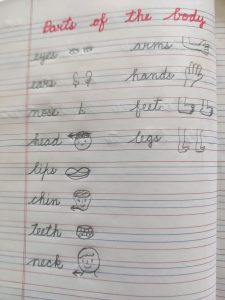 Parts of the body
eyes
ears
nose
head
lips
chin
teeth
neck
arms
hands
feet
legs